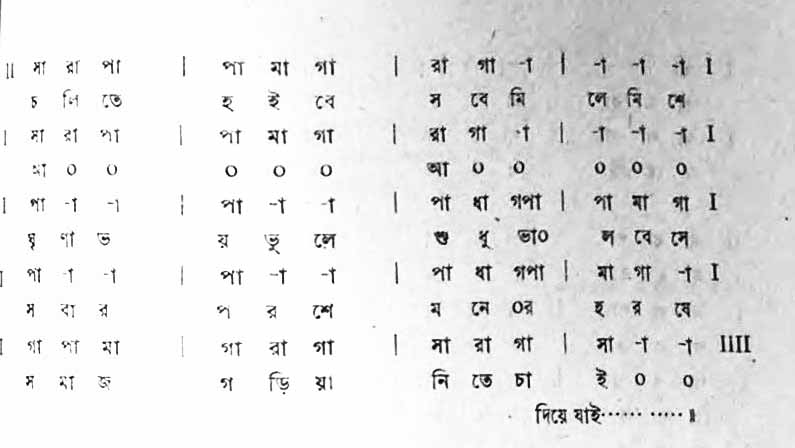 ॥ সা রা পা | পা মা গা | রা গা -া | -া -া -া I
চ লি তে হ ই বে স বে মি লে মি শে
| সা রা পা | পা মা গা | রা গা -া | -া -া -া I
আ ০ ০ ০ ০ ০ আ ০ ০ ০ ০ ০
| পা -া -া | পা -া -া | পা ধা গপা | পা মা গা I
ঘৃ ণা ভ য় ভু লে শু ধু ভা০ ল বে সে
| পা -া -া | পা -া -া | পা ধা গপা | মা গা -া I
স বা র প র শে ম নে ০র হ র ষে
| গা পা মা | গা রা গা | সা রা গা | সা -া -া IIII
স মা জ গ ড়ি য়া নি তে চা ই ০ ০
দিয়ে যাই·········· ॥